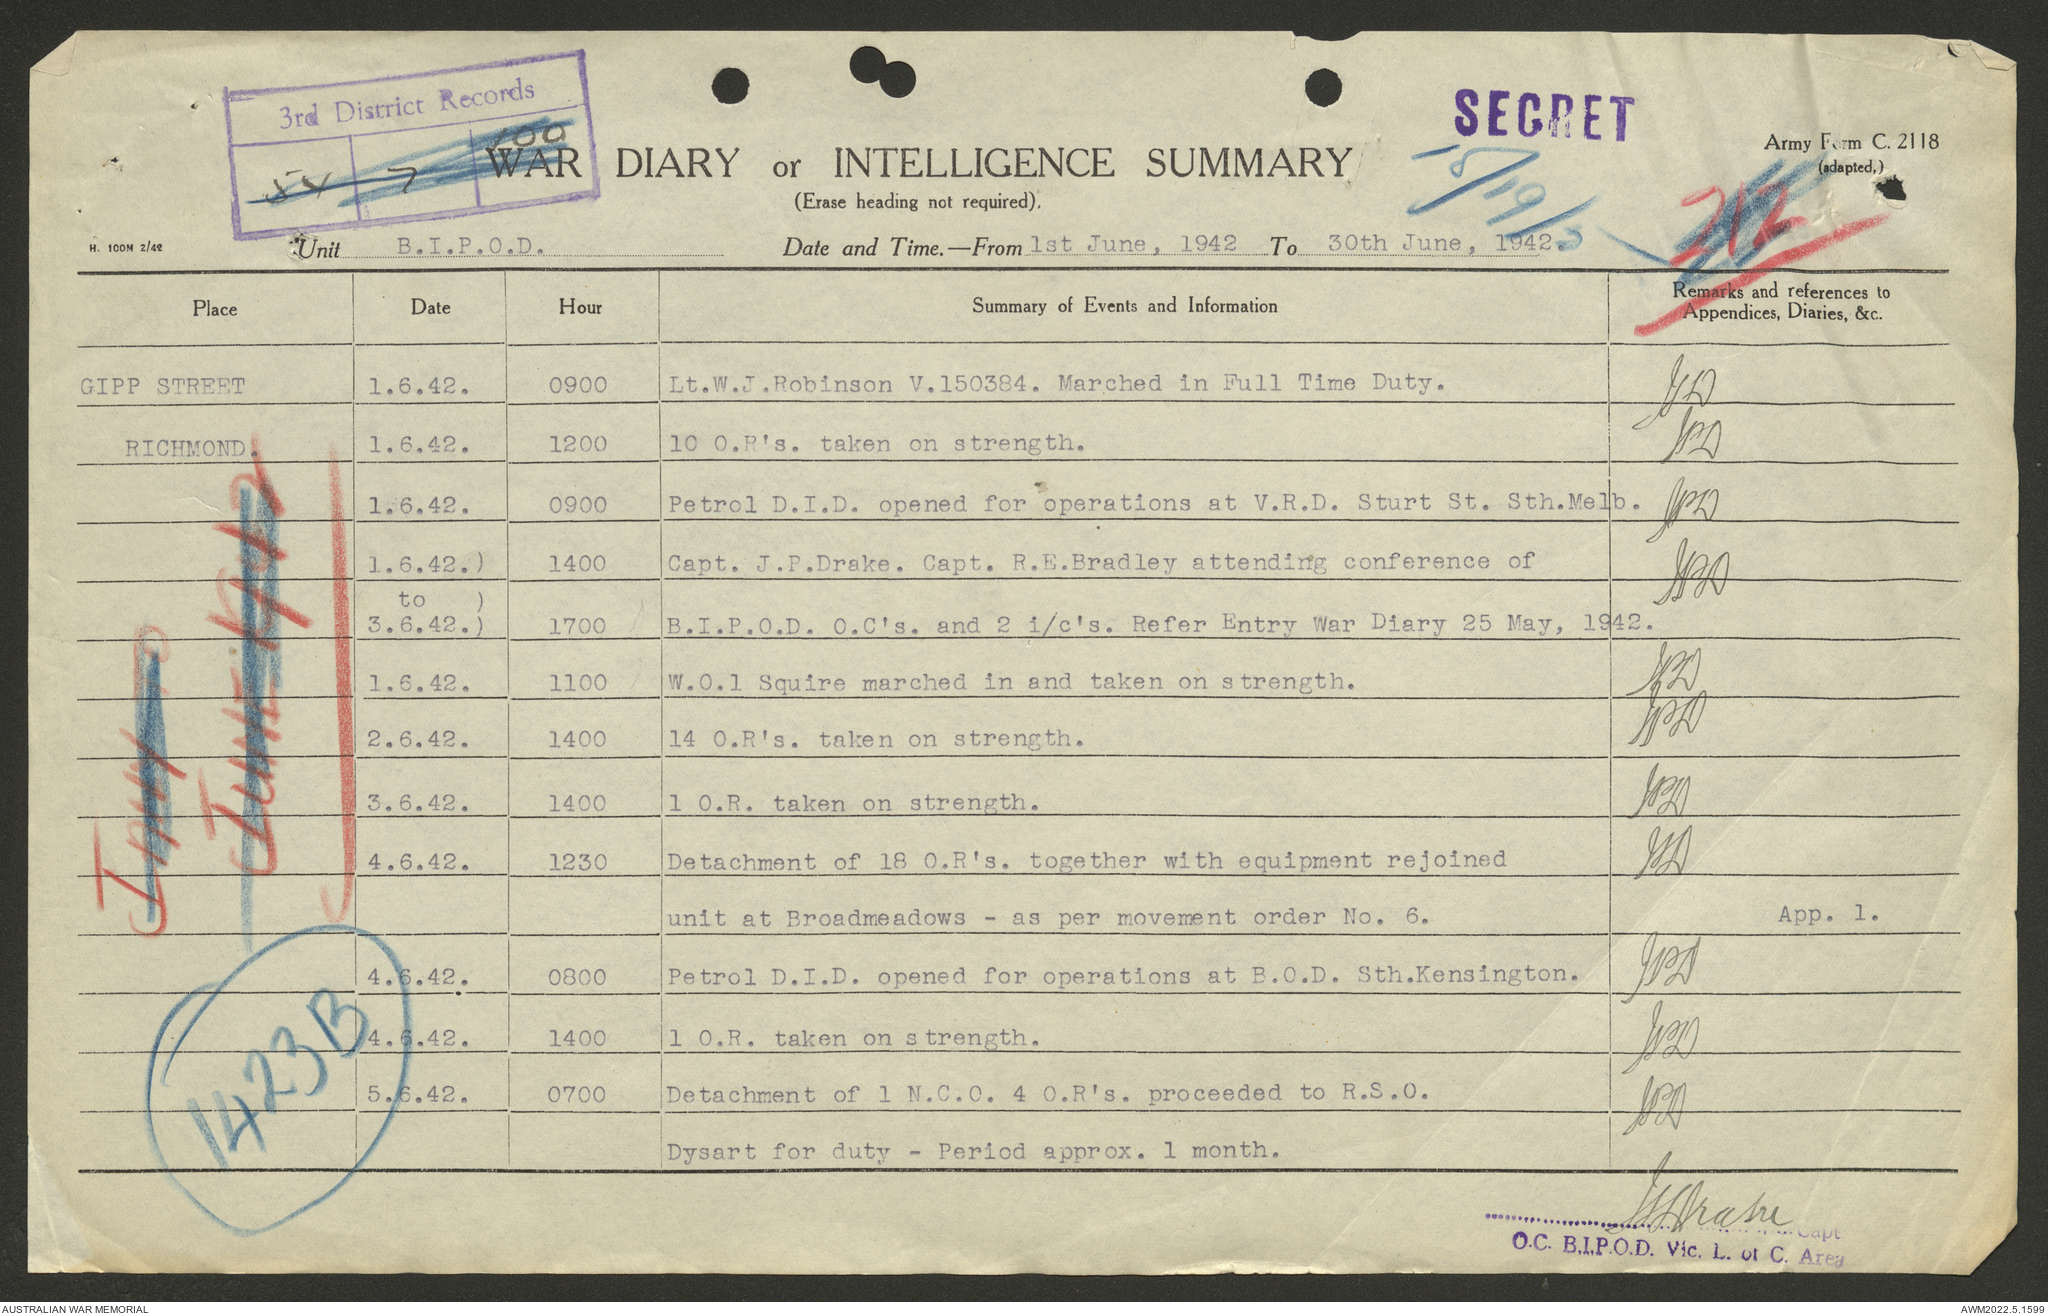 3rd District Records
54 7 100
SECRET
Army Form C. 2118
(adapted.)
WAR DIARY or INTELLIGENCE SUMMARY
(Erase heading not required).
H. 100M 2/42
Unit B.I.P.O.D. Date and Time.—From 1st June, 1942 To 30th June, 1942.
Place Date Hour Summary of Events and Information Remarks and references to
Appendices, Diaries, &c.
GIPP STREET 1.6.42. 0900 Lt.W.J.Robinson V.150384. Marched in Full Time Duty. JPD
RICHMOND. 1.6.42. 1200 10 O.R's. taken on strength. JPD
1.6.42. 0900 Petrol D.I.D. opened for operations at V.R.D. Sturt St. Sth.Melb. JPD
1.6.42.) 1400 Capt. J.P.Drake. Capt. R.E.Bradley attending conference of JPD
to )
3.6.42.) 1700 B.I.P.O.D. O.C's. and 2 i/c's. Refer Entry War Diary 25 May, 1942.
1.6.42. 1100 W.O.1 Squire marched in and taken on strength. JPD
2.6.42. 1400 14 O.R's. taken on strength. JPD
3.6.42. 1400 1 O.R. taken on strength. JPD
4.6.42. 1230 Detachment of 18 O.R's. together with equipment rejoined JPD
unit at Broadmeadows - as per movement order No. 6. App. 1.
4.6.42. 0800 Petrol D.I.D. opened for operations at B.O.D. Sth.Kensington. JPD
4.6.42. 1400 1 O.R. taken on strength. JPD
5.6.42. 0700 Detachment of 1 N.C.O. 4 O.R's. proceeded to R.S.O. JPD
Dysart for duty - Period approx. 1 month.
1423B
JPDrake
Capt.
O.C. B.I.P.O.D. Vic. L. of C. Area
AUSTRALIAN WAR MEMORIAL
AWM2022.5.1599